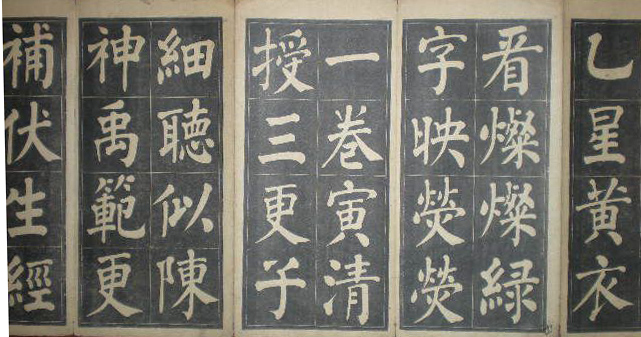 乙星黄衣
看燦燦緑
字映熒熒
一卷寅清
授三更子
細聽似陳
神禹範更
補伏生經